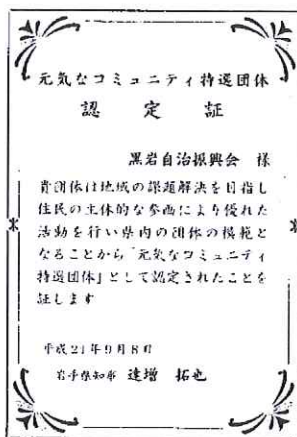 元気なコミュニティ特選団体
認定証
黒岩自治振興会 様
貴団体は地域の課題解決を目指し
住民の主体的な参画により優れた
活動を行い県内の団体の模範と
なることから「元気なコミュニティ
特選団体」として認定されたことを
証します
平成21年9月8日
岩手県知事 達増 拓也